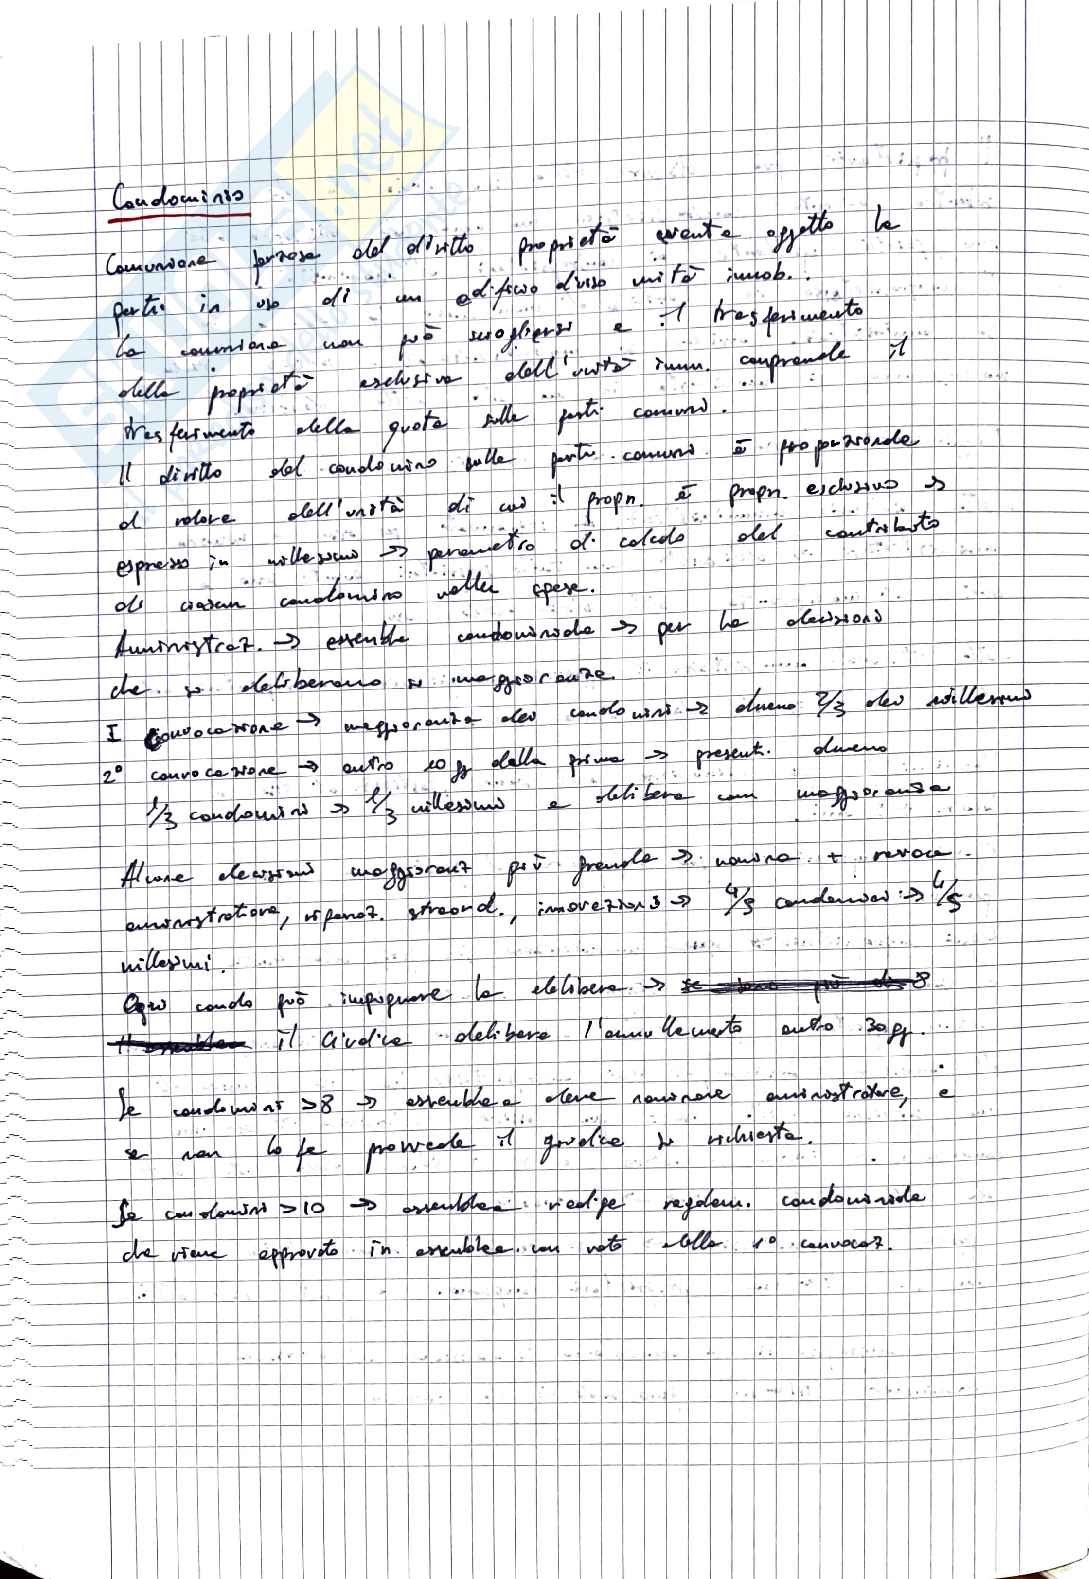 Condominio
Comunione forzosa del diritto proprietà avente oggetto le
parti in uso di un edificio diviso unità immob..
La comunione non può sciogliersi e il trasferimento
della proprietà esclusiva dell'unità imm. comprende il
trasferimento della quota sulle parti comuni.
Il diritto del condomino sulle parti comuni è proporzionale
al valore dell'unità di cui il propr. è propr. esclusivo →
espresso in millesimi → parametro di calcolo del contributo
di ciascun condomino nelle spese.
Amministraz. → assemblea condominiale → per le decisioni
che si deliberano a maggioranza.
I Convocazione → maggioranza dei condomini → almeno 2/3 dei millesimi
2° convocazione → entro 10 gg dalla prima → presenti almeno
1/3 condomini → 1/3 millesimi e delibera con maggioranza
Alcune decisioni maggioranz più grande → nomina + revoca
amministratore, riparaz. straord., innovazioni → 4/5 condomini → 4/5
millesimi.
Ogni condo può impugnare la delibera → se sono più di 8
il Giudice delibera l'annullamento entro 30 gg.
Se condomini > 8 → assemblea deve nominare amministratore, e
se non lo fa provvede il giudice su richiesta.
Se condomini > 10 → assemblea redige regolam. condominiale
che viene approvato in assemblea con voto della 1° convocaz.